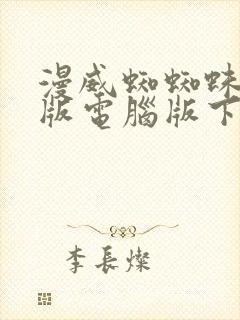 漫威蜘蜘蛛
版電腦版下
李長燦